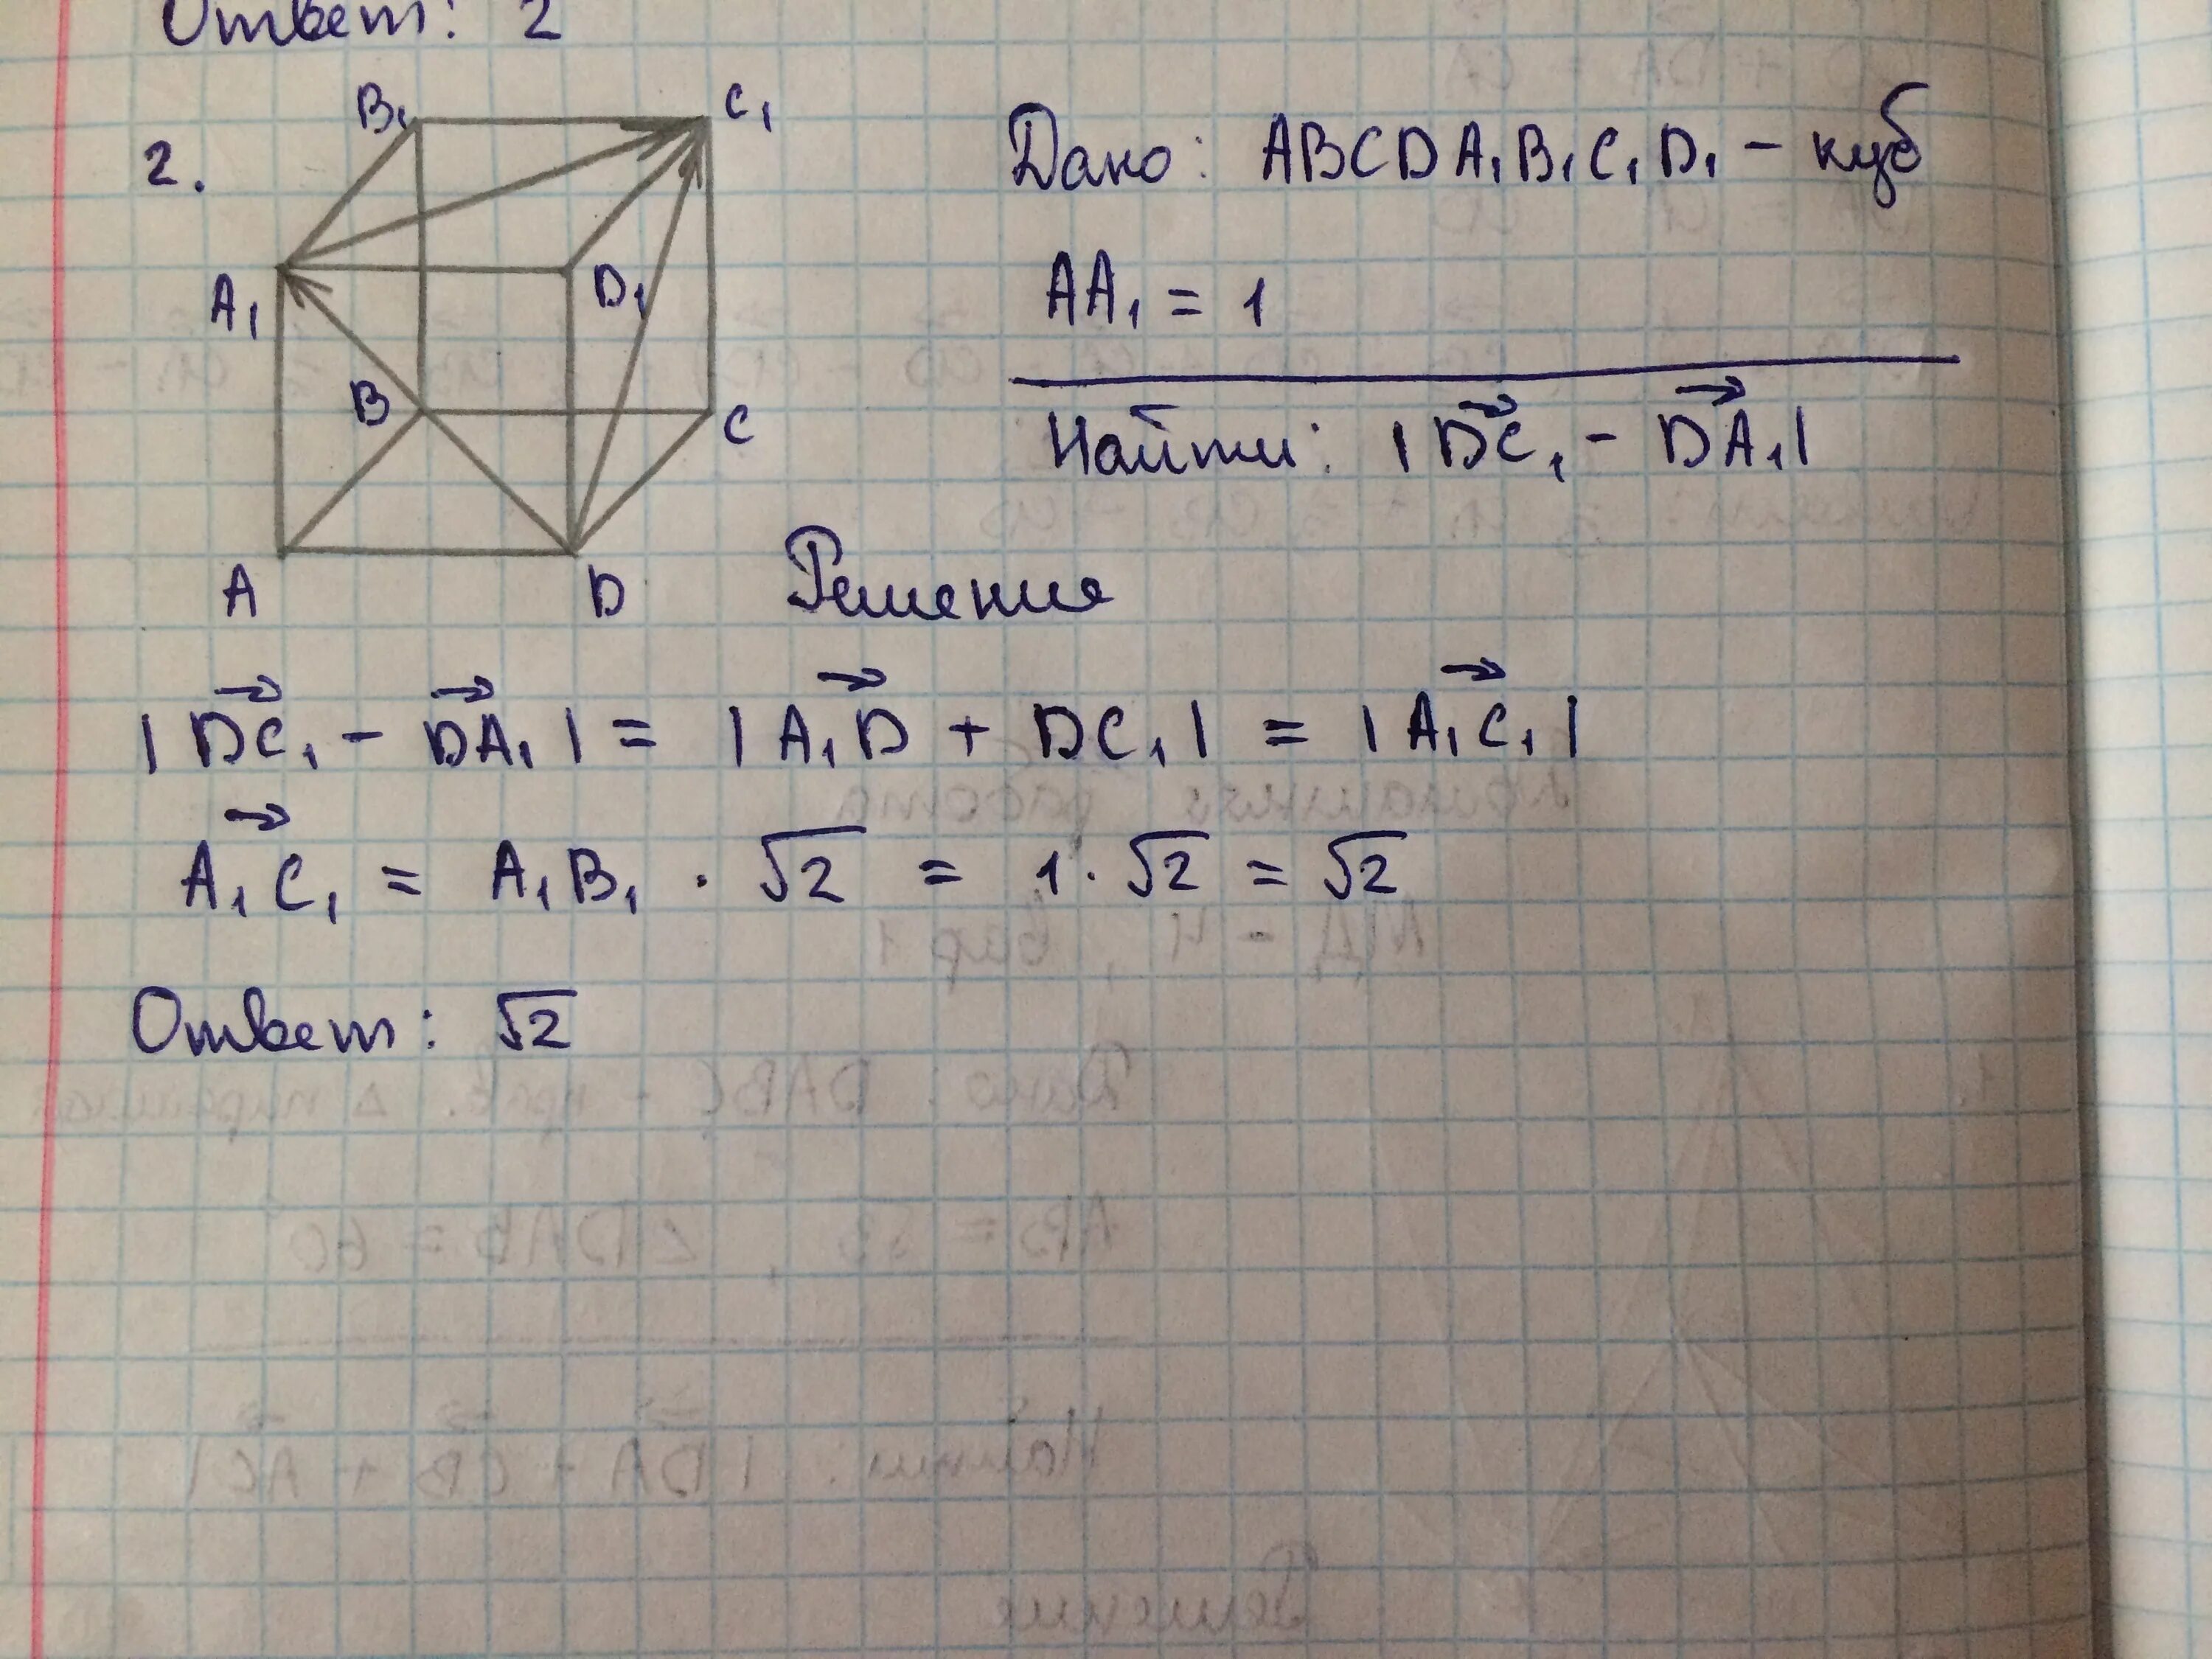 Ответ: 2
2.
B₁
C₁
A₁
D₁
B
C
A
D
Дано: ABCDA₁B₁C₁D₁ - куб
AA₁ = 1
Найти: |DC₁ - DA₁|
Решение
|DC₁ - DA₁| = |A₁D + DC₁| = |A₁C₁|
A₁C₁ = A₁B₁ · √2 = 1 · √2 = √2
Ответ: √2